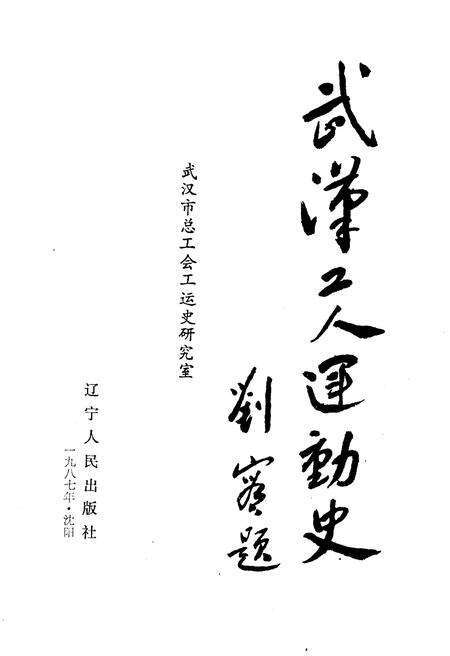 武漢工人運動史
劉題
武汉市总工会工运史研究室
辽宁人民出版社
一九八七年·沈阳